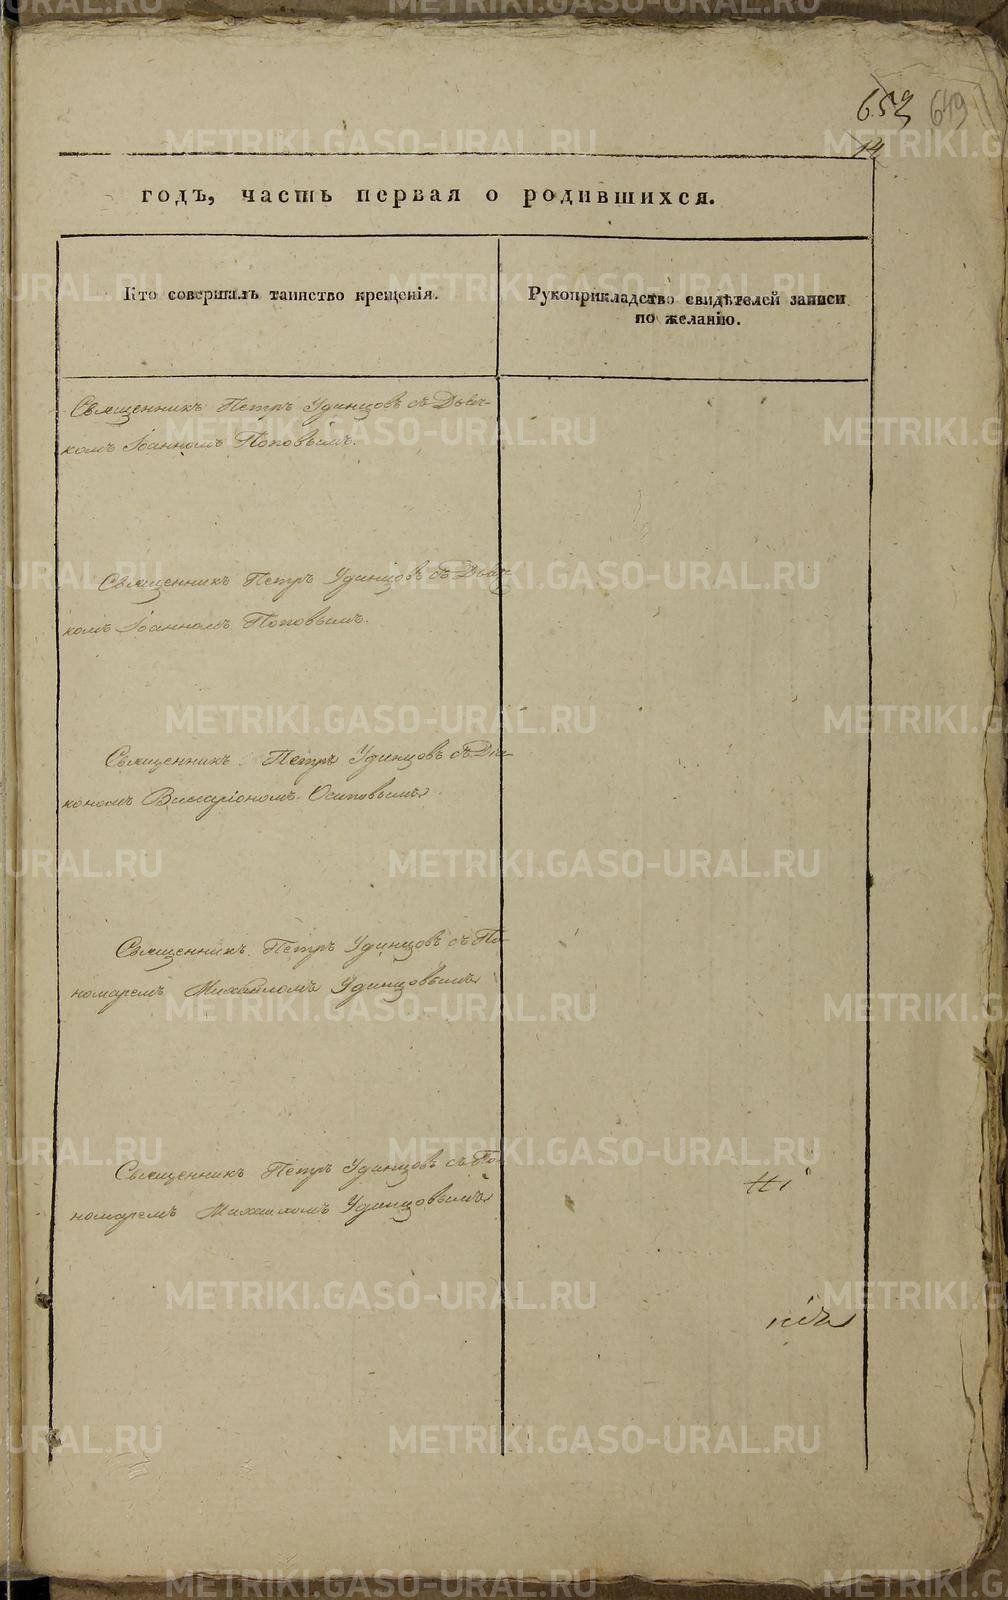 653 649
14
годъ, часть первая о родившихся.
Кто совершалъ таинство крещенія.
Рукоприкладство свидѣтелей записи
по желанію.
Священникъ Петръ Удинцовъ съ Дьяч-
комъ Іоанномъ Поповымъ.
Священникъ Петръ Удинцовъ съ Дьяч-
комъ Іоанномъ Поповымъ.
Священникъ Петръ Удинцовъ съ Діа-
кономъ Виссаріономъ Осиповымъ
Священникъ Петръ Удинцовъ съ По-
номаремъ Михаиломъ Удинцовымъ
Священникъ Петръ Удинцовъ съ По-
номаремъ Михаиломъ Удинцовымъ
METRIKI.GASO-URAL.RU